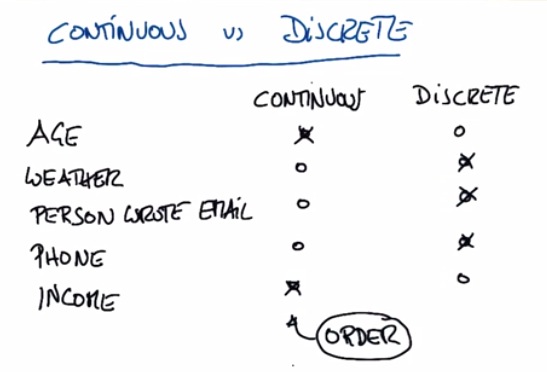 CONTINUOUS vs DISCRETE
CONTINUOUS DISCRETE
AGE
WEATHER
PERSON WROTE EMAIL
PHONE
INCOME
ORDER